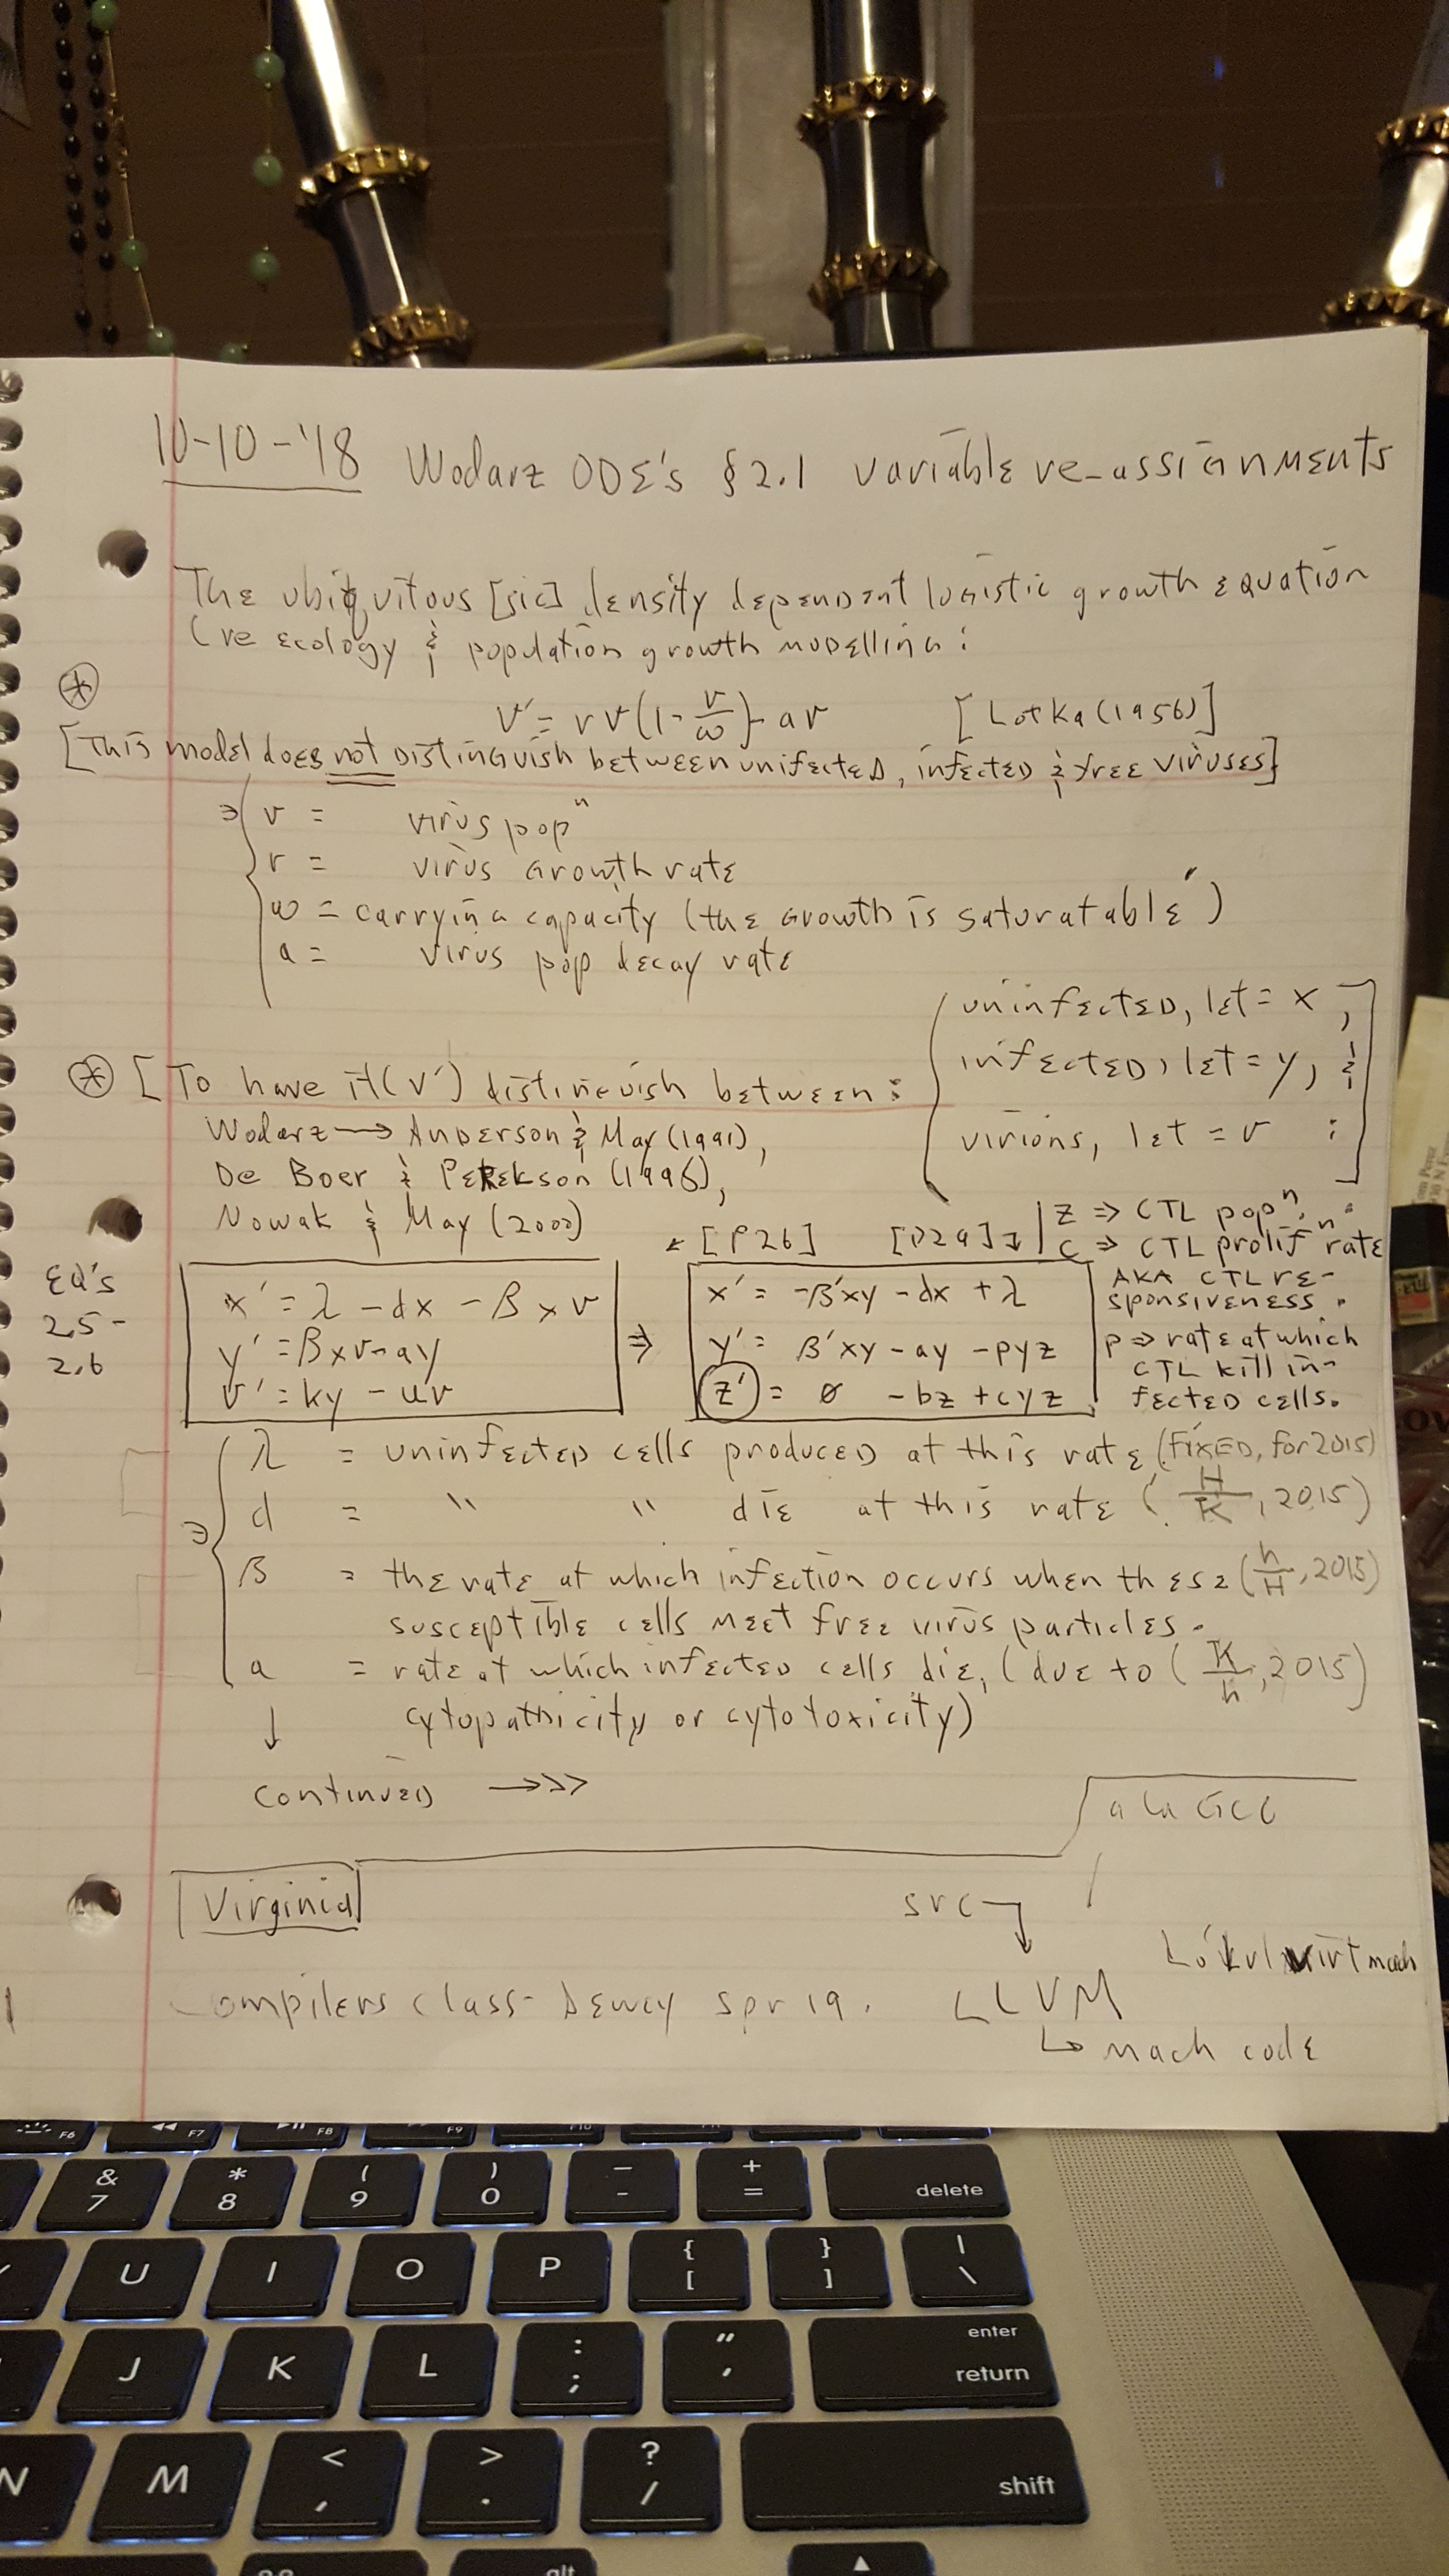 10-10-'18 Wodarz ODE's §2.1 variable re-assignments
The ubiqvitous [sic] density dependent logistic growth equation
(re ecology & population growth modelling:
v' = rv(1-v/ω) - av [Lotka (1956)]
[This model does not distinguish between unifected, infected & free viruses]
⇒ v = virus popⁿ
r = virus growth rate
ω = carrying capacity (the growth is 'saturatable')
a = virus pop decay rate
uninfected, let = x,
infected, let = y, &
virions, let = v :
[To have it (v') distinguish between:
Wodarz → Anderson & May (1991),
De Boer & Perekson (1996),
Nowak & May (2000)
[P26] [P29] z ⇒ CTL popⁿ,
c ⇒ CTL prolifⁿ rate
AKA CTL re-
sponsiveness.
p ⇒ rate at which
CTL kill in-
fected cells.
EQ's
2.5-
2.6
x' = λ - dx - βxv
y' = βxv - ay
v' = ky - uv
⇒
x' = -β'xy - dx + λ
y' = β'xy - ay - pyz
z' = ø - bz + cyz
λ = uninfected cells produced at this rate (FIXED, for 2015)
d = " " die at this rate (H/K, 2015)
β = the rate at which infection occurs when these (h/H, 2015)
susceptible cells meet free virus particles.
a = rate at which infected cells die, (due to (K/h, 2015)
cytopathicity or cytotoxicity)
↓
continued →>>
a la GCC
Virginia
src
Compilers class - Dewey spr 19. LLVM
mach code
F6 F7 F8 F9 F10
& 7 * 8 ( 9 ) 0 _ - + = delete
U I O P { [ } ] | \
J K L : ; " ' enter return
N M < , > . ? / shift
alt